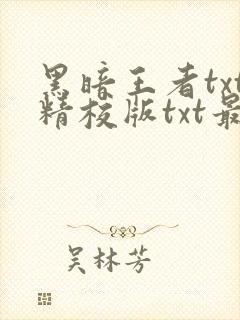 黑暗王者txt
精校版txt最
吴林芳